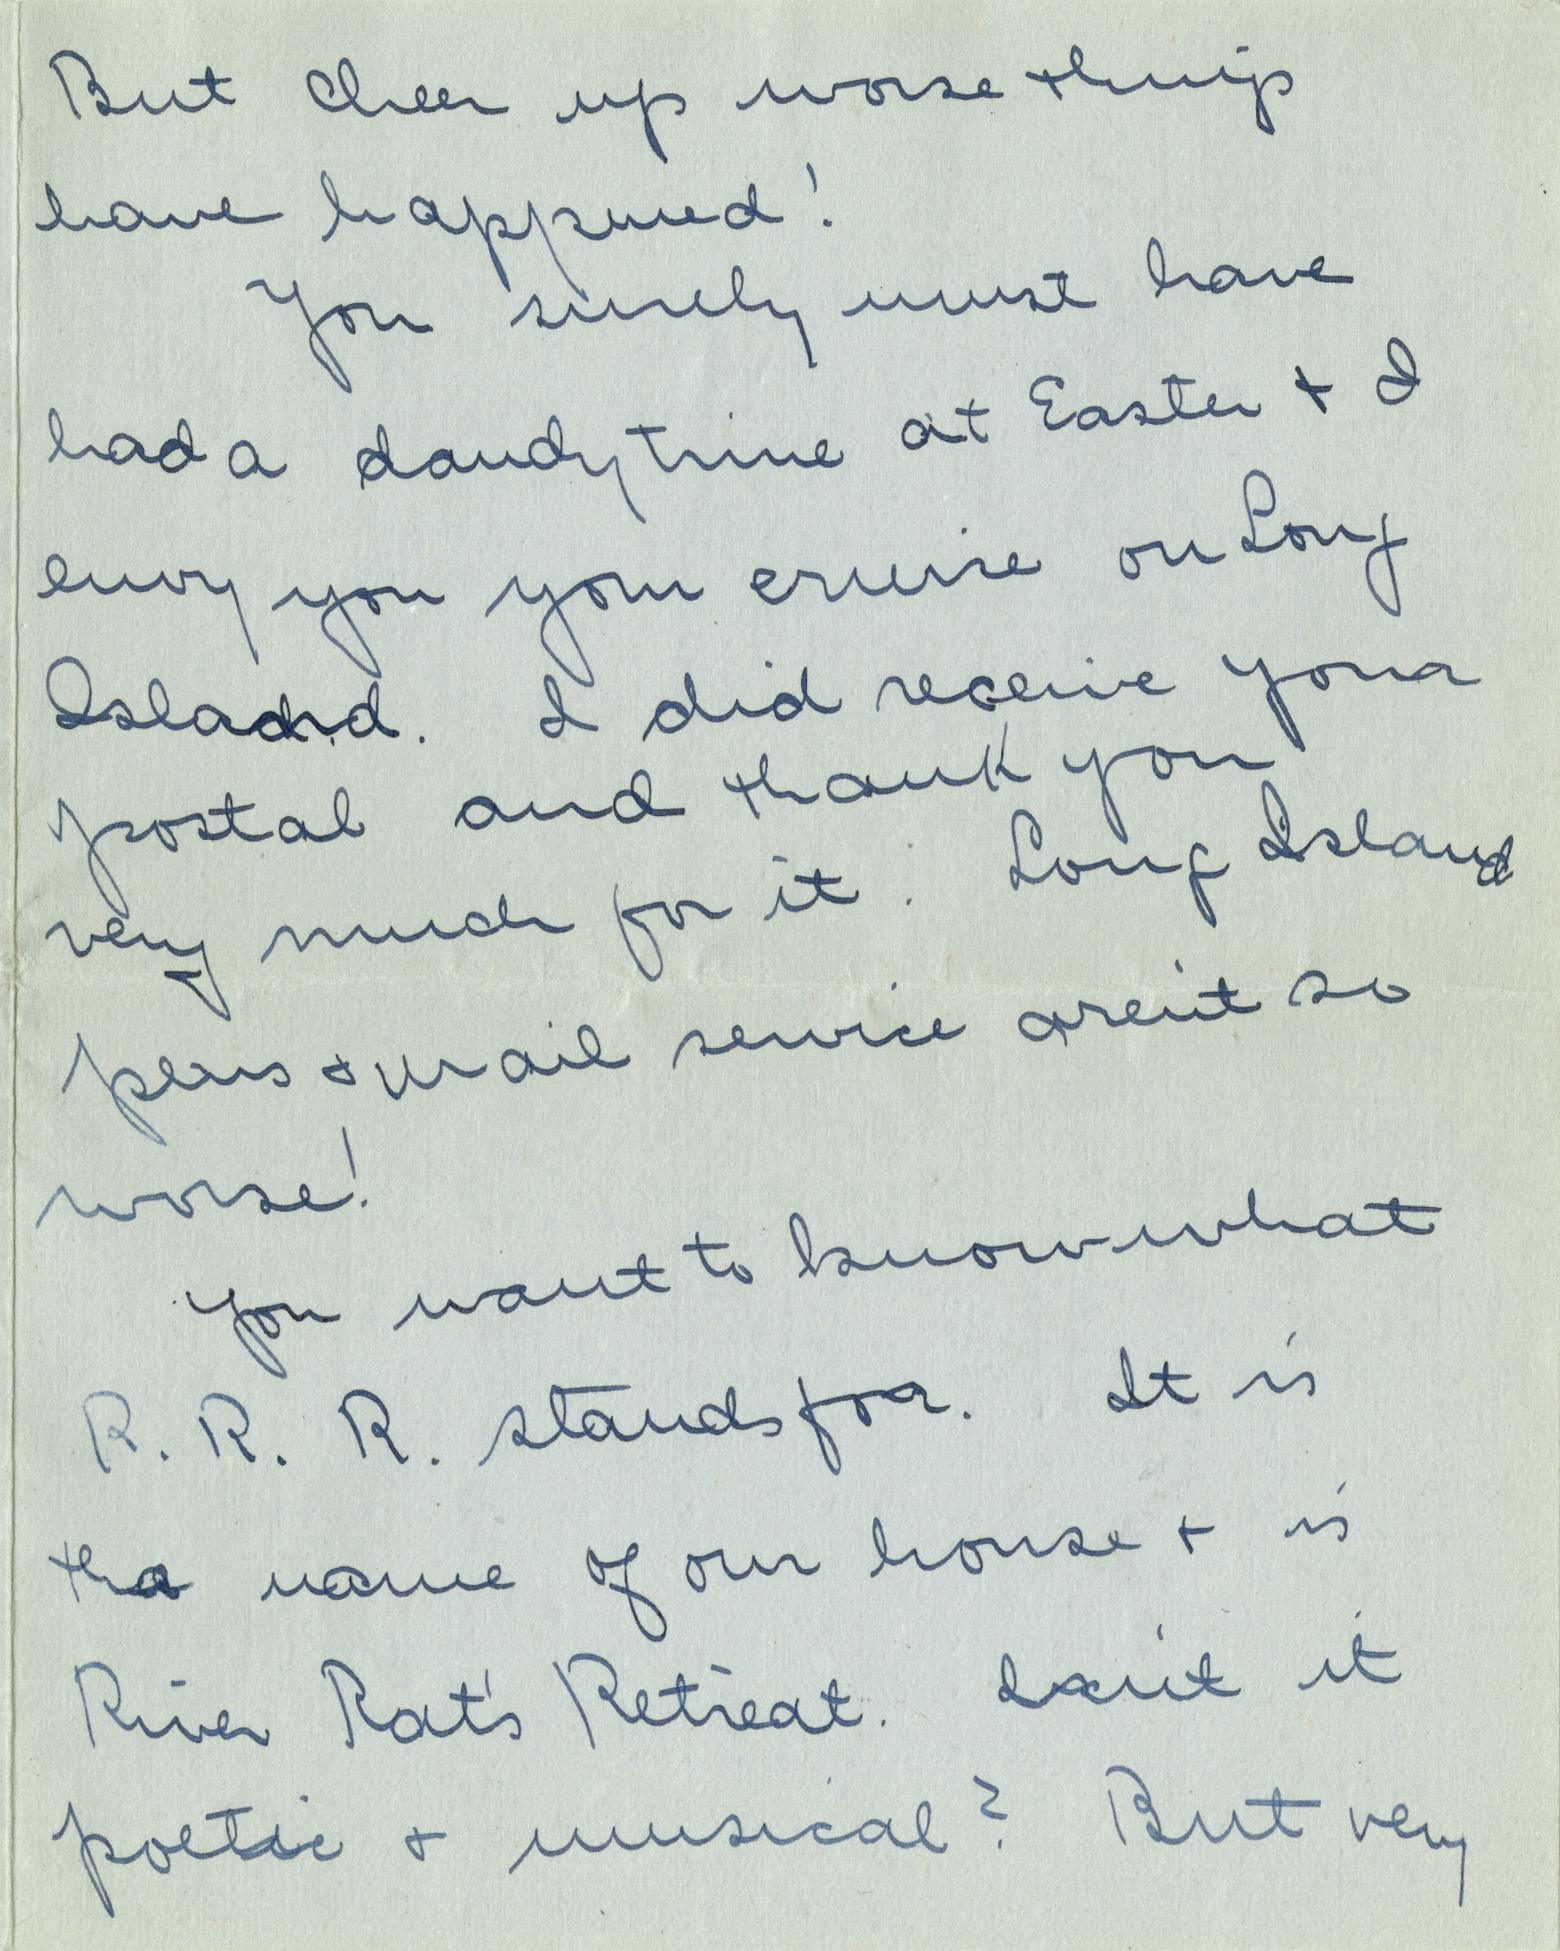 But cheer up worse things
have happened!
You surely must have
had a dandy time at Easter + I
envy you your cruise on Long
Island. I did receive your
postal and thank you
very much for it. Long Island
pens & mail service aren't so
worse!
You want to know what
R. R. R. stands for. It is
the name of our house + is
River Rat's Retreat. Isn't it
poetic + musical? But very